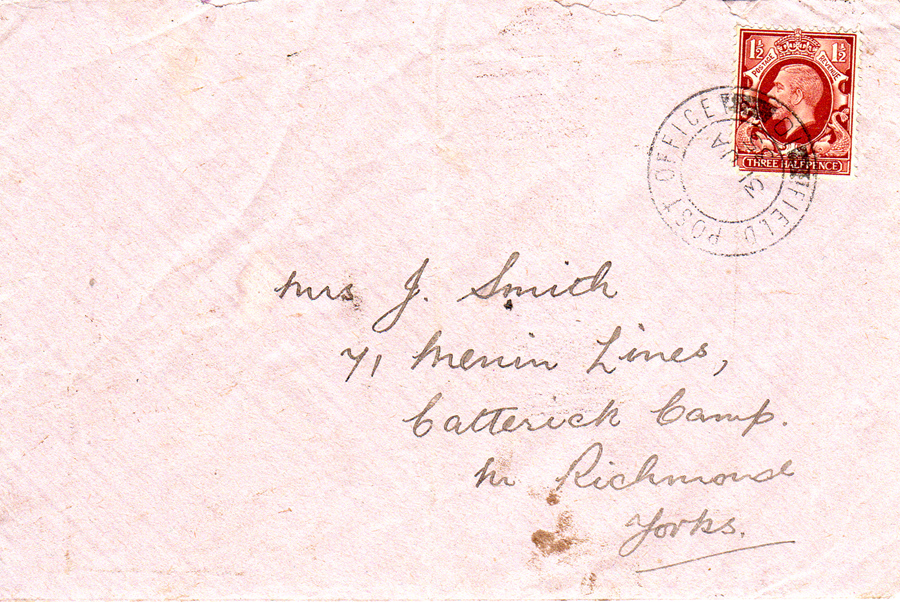 1½ 1½
POSTAGE REVENUE
THREE HALFPENCE
FIELD POST OFFICE
31 AU
Mrs J. Smith
71 Menin Lines,
Catterick Camp.
Nr Richmond
Yorks.